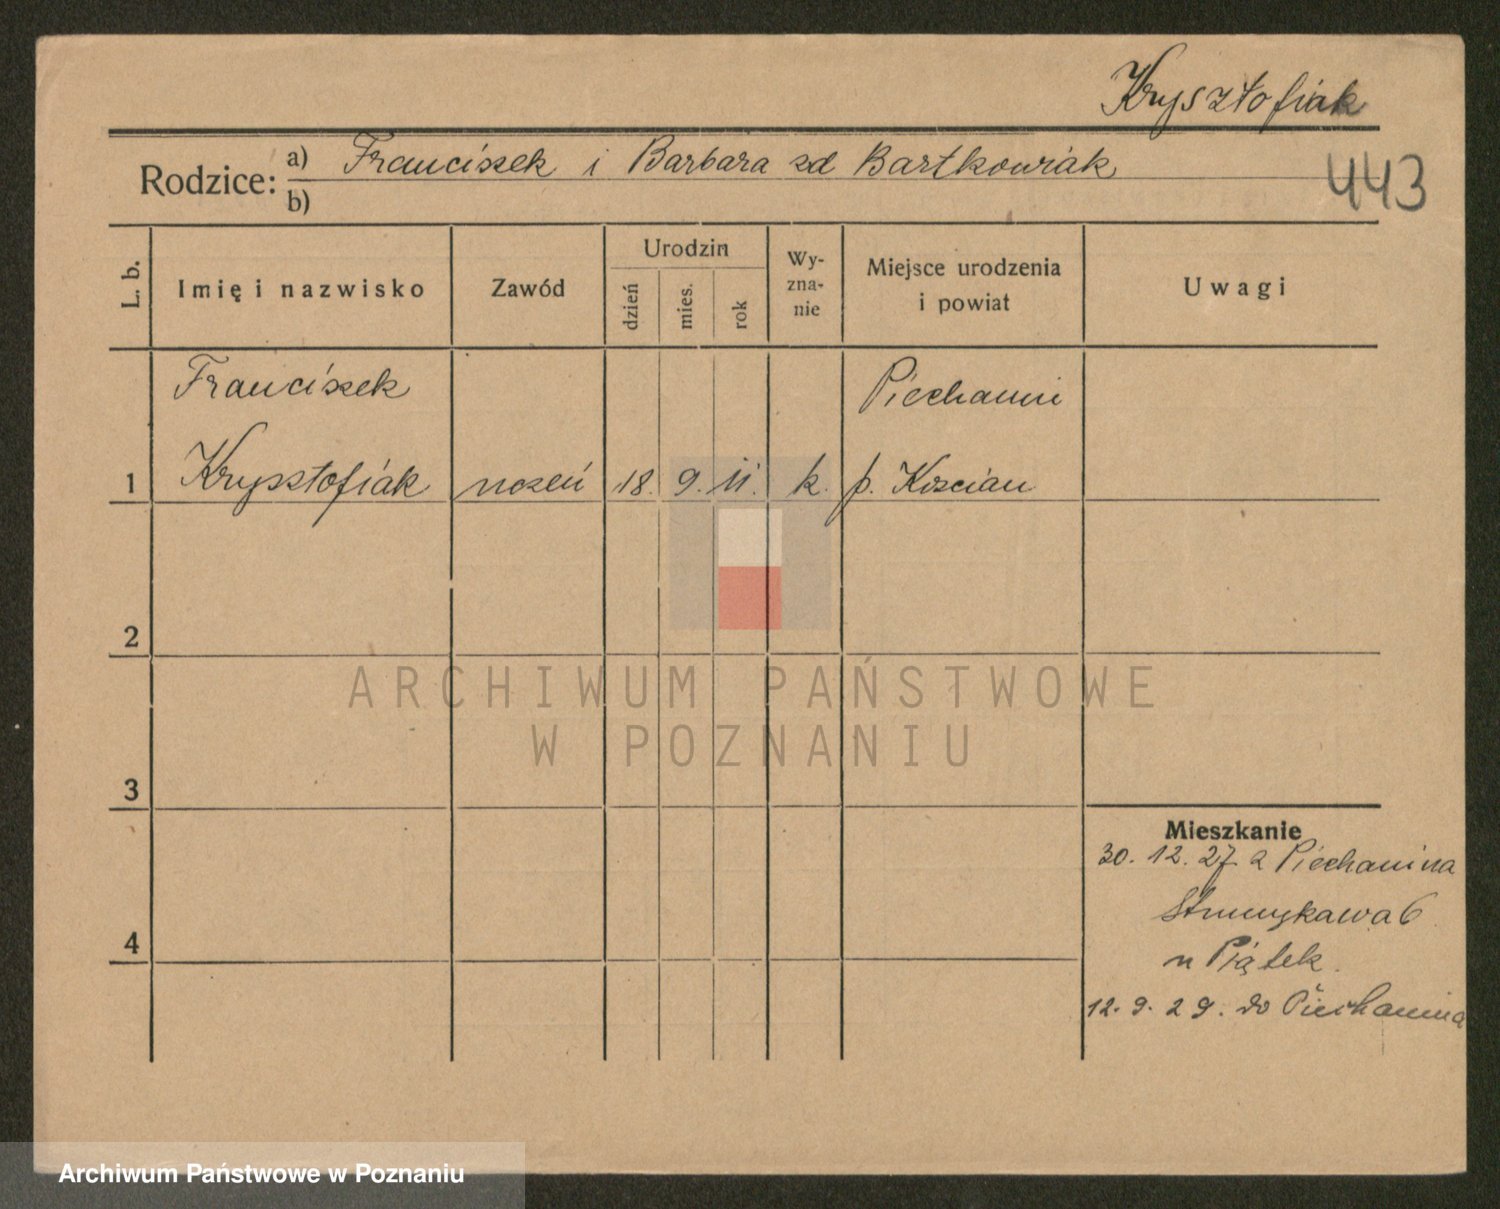 Krysztofiak
Rodzice: a) Franciszek i Barbara zd Bartkowiak
b)
443
L. b.
Imię i nazwisko
Zawód
Urodzin
dzień
mies.
rok
Wy-
zna-
nie
Miejsce urodzenia
i powiat
Uwagi
Franciszek
Piechanin
1 Krysztofiak uczeń 18. 9. 11. k. p. Koscian
2
3
4
Mieszkanie
30. 12. 27 z Piechanina
Strumykawa 6
u Piątek.
12. 9. 29. do Piechanina
ARCHIWUM PAŃSTWOWE
W POZNANIU
Archiwum Państwowe w Poznaniu